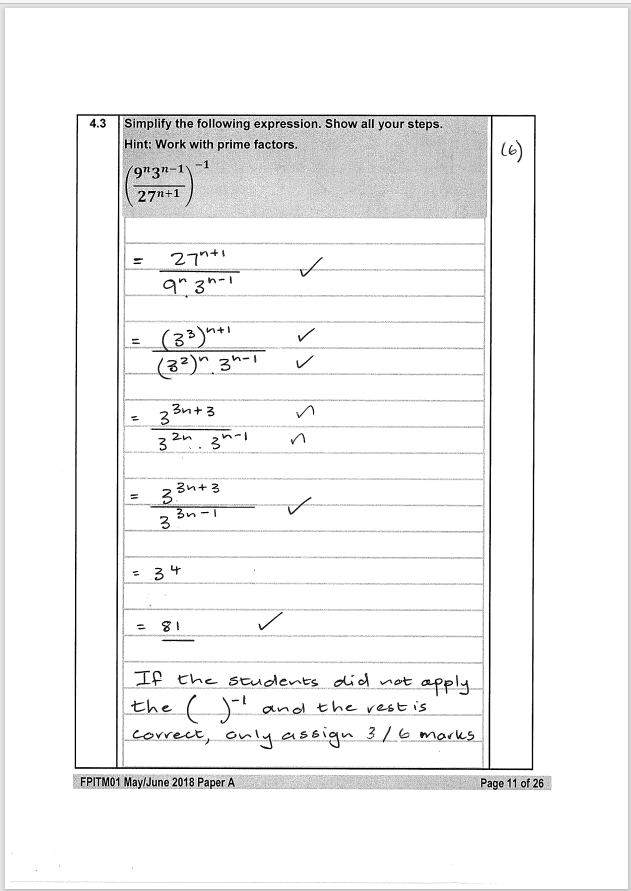 4.3 Simplify the following expression. Show all your steps.
Hint: Work with prime factors.
(9ⁿ3ⁿ⁻¹ / 27ⁿ⁺¹)⁻¹
(6)
= 27ⁿ⁺¹ / 9ⁿ . 3ⁿ⁻¹ ✓
= (3³)ⁿ⁺¹ ✓ / (3²)ⁿ . 3ⁿ⁻¹ ✓
= 3³ⁿ⁺³ / 3²ⁿ . 3ⁿ⁻¹
= 3³ⁿ⁺³ / 3³ⁿ⁻¹ ✓
= 3⁴
= 81 ✓
If the students did not apply
the ( )⁻¹ and the rest is
correct, only assign 3/6 marks
FPITM01 May/June 2018 Paper A Page 11 of 26